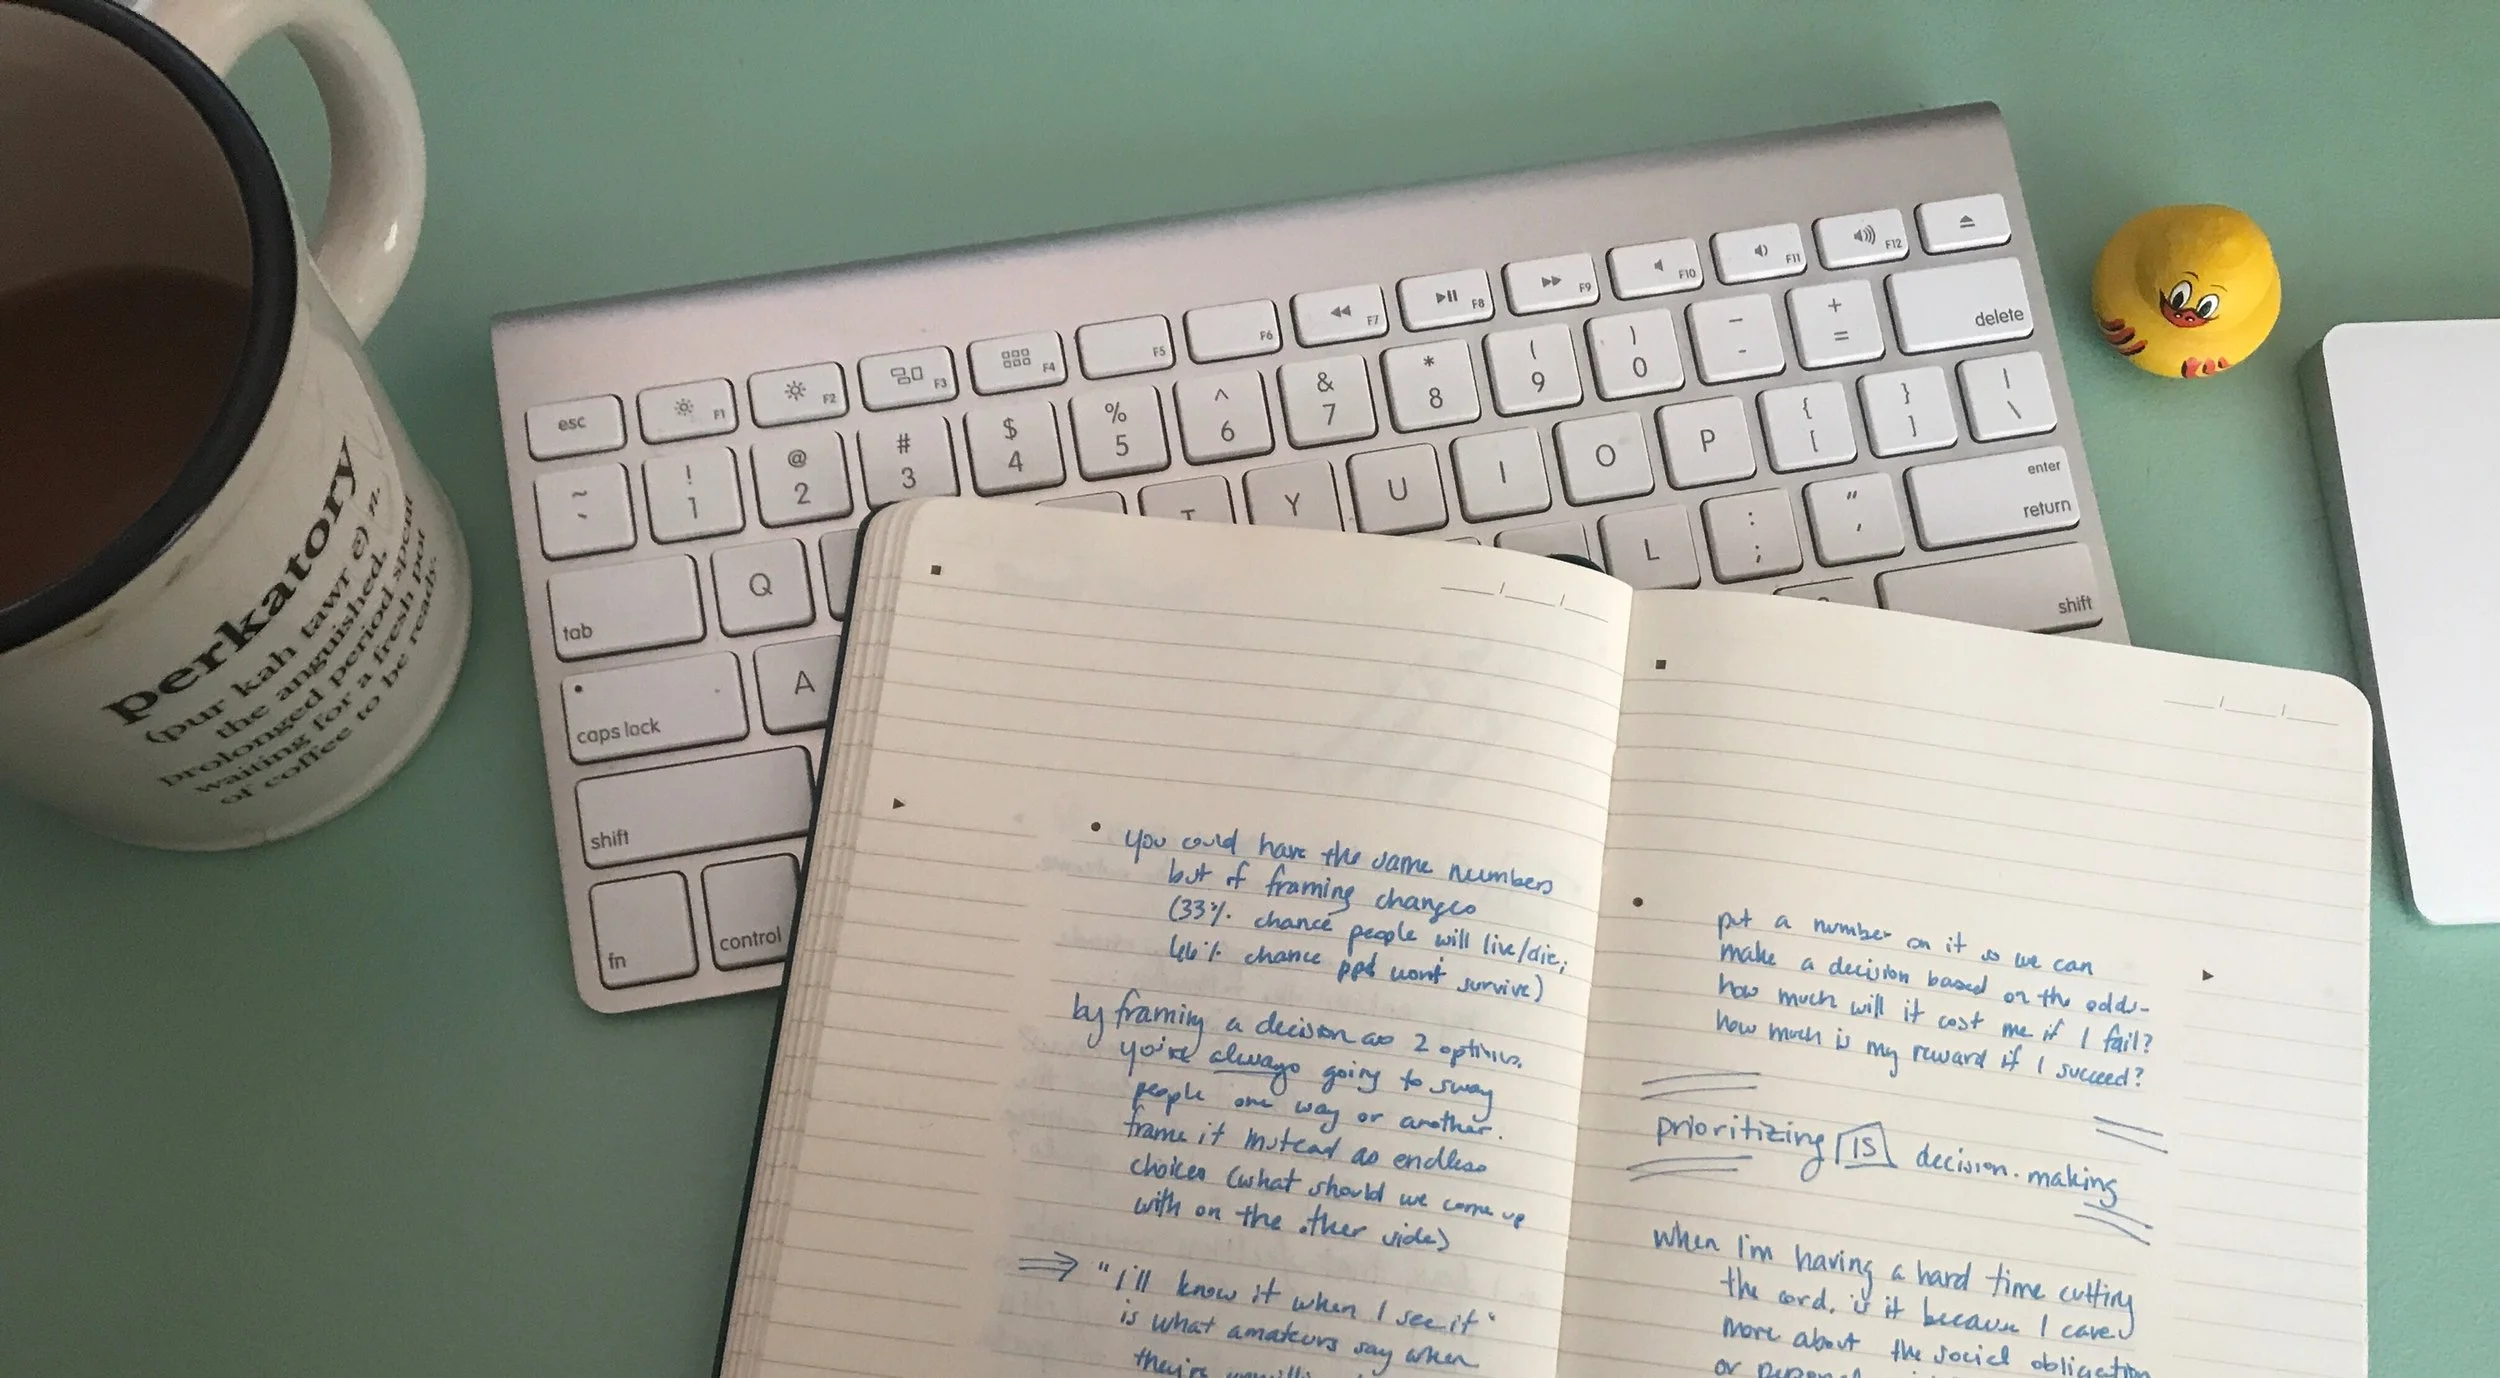 perkatory
(pur kah tawr e) n.
the anguished,
prolonged period spent
waiting for a fresh pot
of coffee to be ready.
esc
F1
F2
F3
F4
F5
F6
F7
F8
F9
F10
F11
F12
~ `
! 1
@ 2
# 3
$ 4
% 5
^ 6
& 7
* 8
( 9
) 0
_ -
+ =
delete
tab
Q
T
Y
U
I
O
P
{ [
} ]
| \
caps lock
A
L
: ;
" '
enter
return
shift
shift
fn
control
• you could have the same numbers
but if framing changes
(33% chance people will live/die;
66% chance ppl won't survive)
by framing a decision as 2 options,
you're always going to sway
people one way or another.
frame it instead as endless
choices (what should we come up
with on the other side)
⇒ "i'll know it when I see it"
is what amateurs say when
• put a number on it so we can
make a decision based on the odds-
how much will it cost me if I fail?
how much is my reward if I succeed?
prioritizing IS decision-making
when I'm having a hard time cutting
the cord, is it because I care
more about the social obligation
or